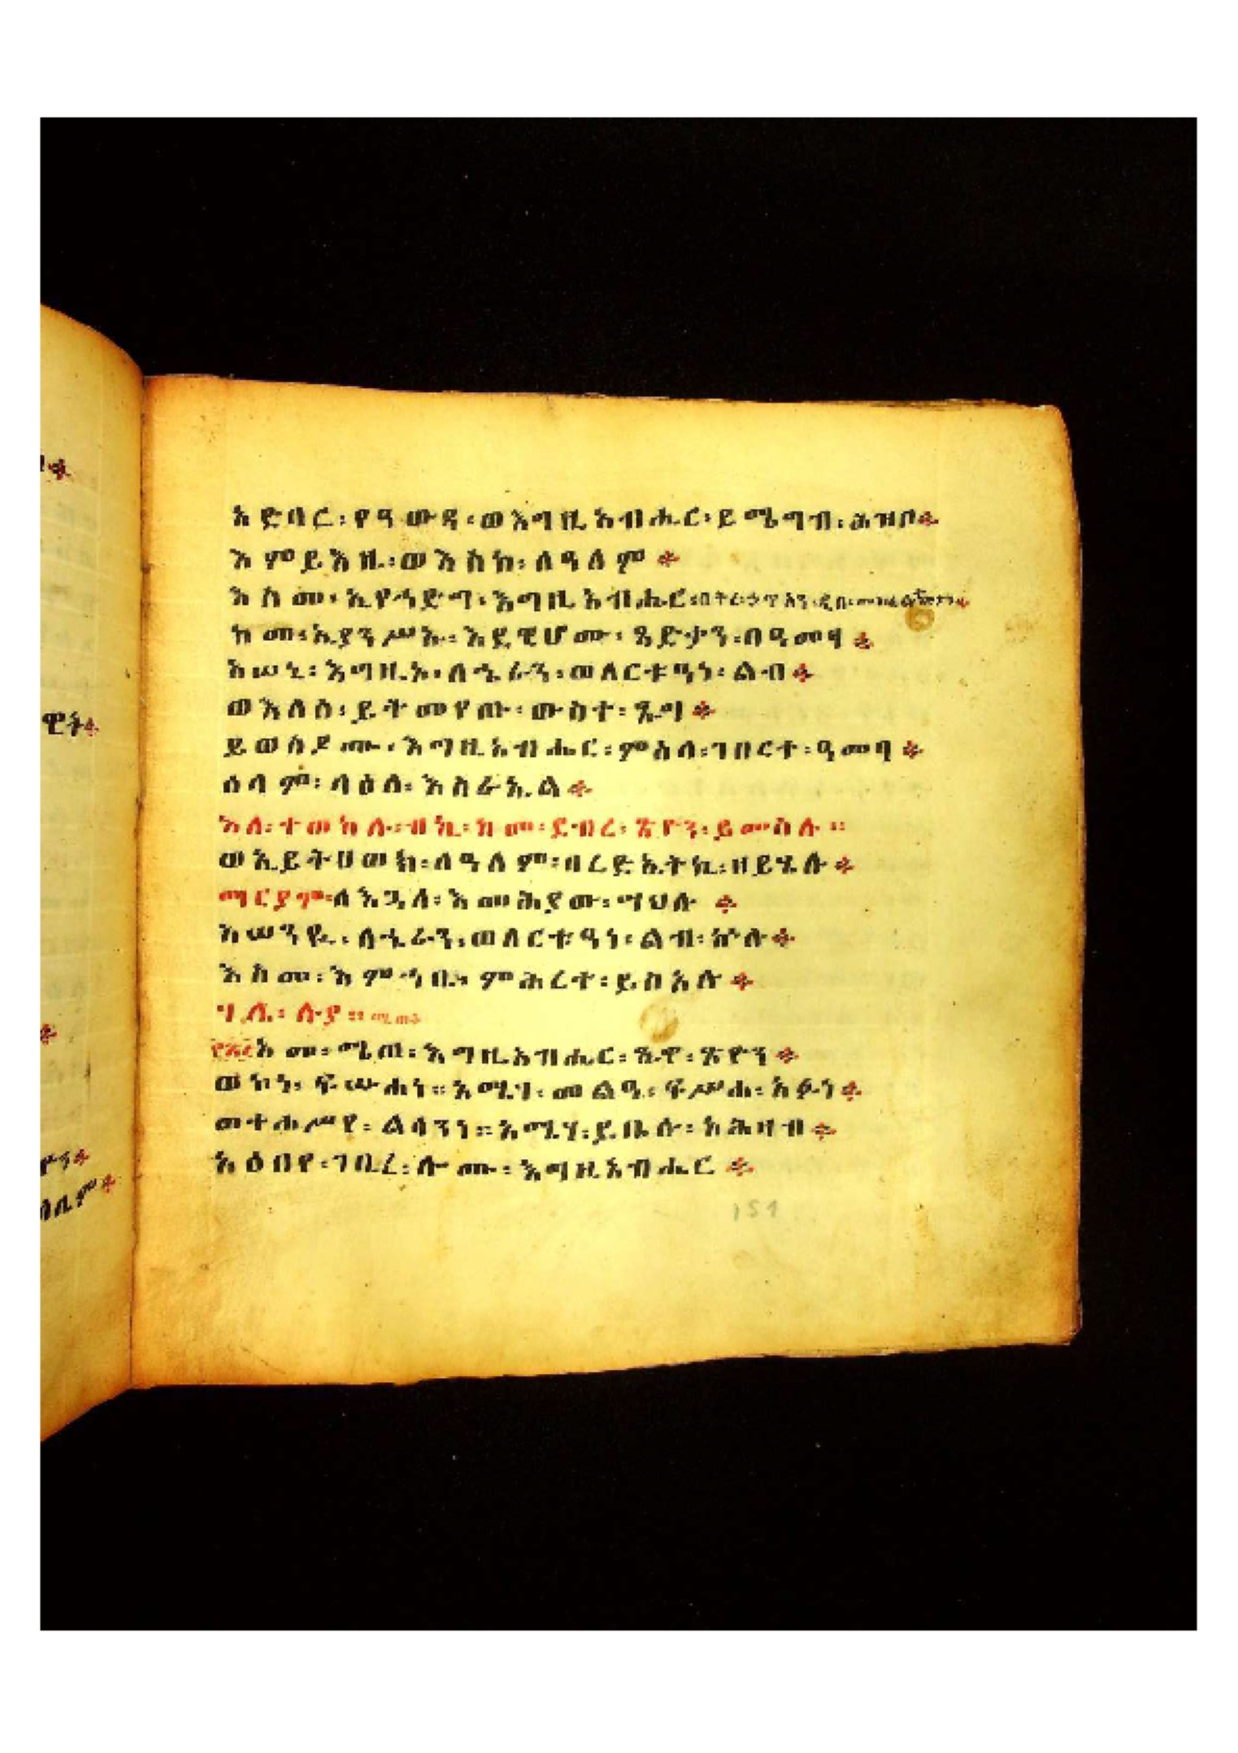 አድባር፡የዓውዳ፡ወእግዚአብሔር፡ይሜግብ፡ሕዝቦ
እምይእዜ፡ወእስከ፡ለዓለም
እስመ፡ኢየኀድግ፡እግዚአብሔር፡
ከመ፡ኢያንሥኡ፡እደዊሆሙ፡ጻድቃን፡በዓመፃ
አሠኒ፡እግዚኦ፡ለኄራን፡ወለርቱዓነ፡ልብ
ወእለሰ፡ይትመየጡ፡ውስተ፡ጌጋ
ይወስዶሙ፡እግዚአብሔር፡ምስለ፡ገበርተ፡ዓመፃ
ሰላም፡ላዕለ፡እስራኤል
እለ፡ተወከሉ፡ብኪ፡ከመ፡ደብረ፡ጽዮን፡ይመስሉ።
ወኢይትሀወክ፡ለዓለም፡በረድኤትኪ፡ዘይሄሉ
ማርያም፡ለእጓለ፡እመሕያው፡ግህሉ
አሠንዪ፡ለኄራን፡ወለርቱዓነ፡ልብ፡ኵሉ
እስመ፡እምኀቤኪ፡ምሕረተ፡ይስእሉ
ሃሌ፡ሉያ።
አመ፡ሜጠ፡እግዚአብሔር፡ጼዋ፡ጽዮን
ወኮነ፡ፍሡሐነ።አሜሃ፡መልዓ፡ፍሥሐ፡አፉነ
ወተሐሥየ፡ልሳንነ።አሜሃ፡ይቤሉ፡አሕዛብ
አዕበየ፡ገቢረ፡ሎሙ፡እግዚአብሔር
151